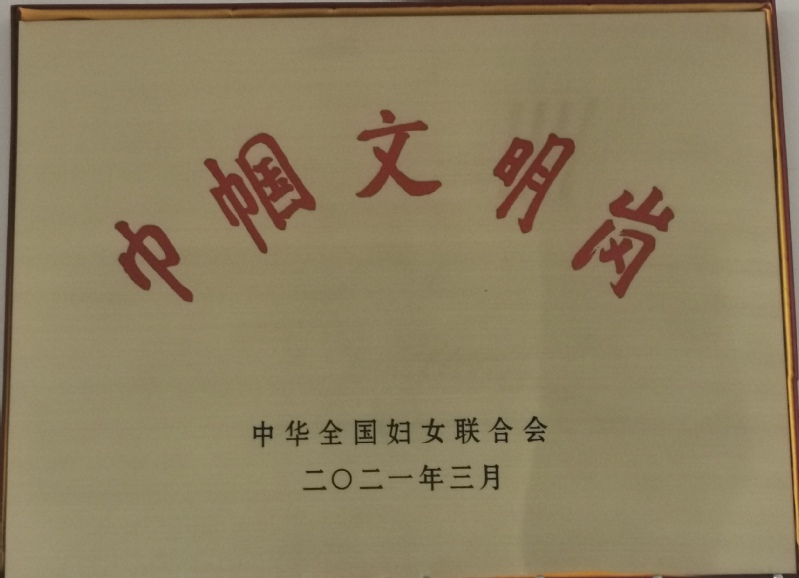 巾帼文明岗
中华全国妇女联合会
二〇二一年三月